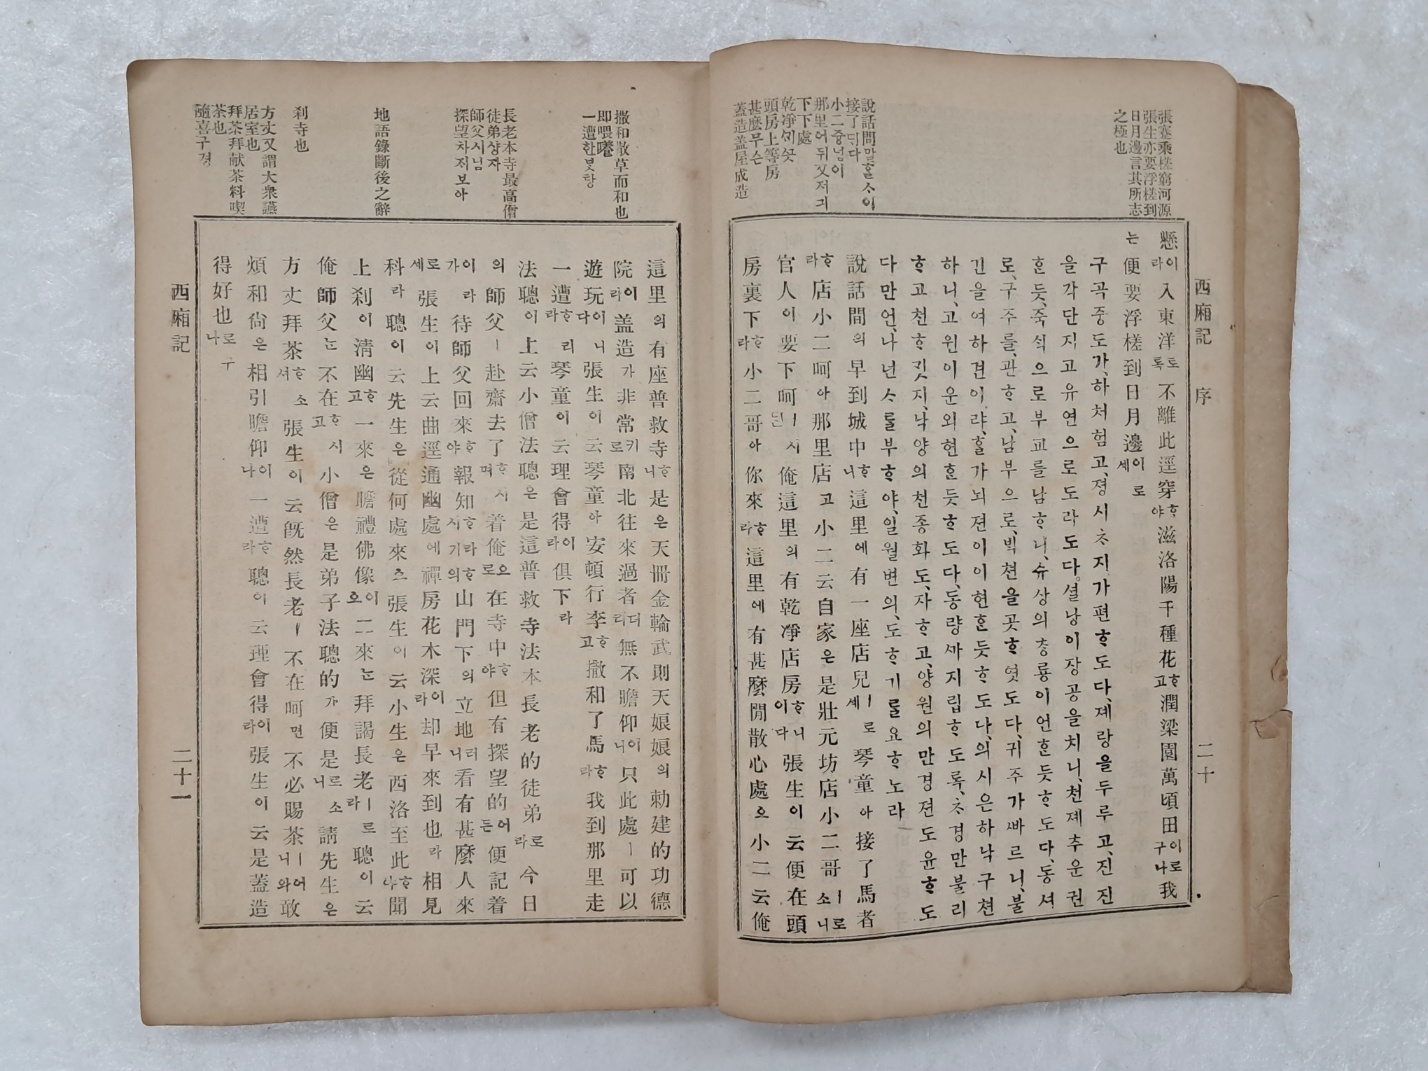 張騫乘槎窮河源
張生亦要浮槎到
日月邊言其所志
之極也
說話間말할사이
接了디다
小二즁넝이
那里어뒤又저긔
下下處
乾淨씨슷
頭房上等房
甚麽무슨
蓋造盖屋成造
西廂記 序 二十
懸이라入東洋토록不離此逕穿ᄒᆞ야滋洛陽千種花ᄒᆞ고潤梁園萬頃田이로구나我
는便要浮槎到日月邊이로세
구곡즁도가、하쳐험고졍시ᄎᆞ지가편ᄒᆞ도다、졔랑을두루고、진진
을각단지고유연으로도라도다、셜낭이장공을치니、쳔졔추운권
ᄒᆞᆫ듯、죽ᄉᆡᆨ으로부교를남ᄒᆞ니、슈상의창룡이언ᄒᆞᆫ듯ᄒᆞ도다、동셔
로、구주를、관ᄒᆞ고、남부으로、ᄇᆡᆨ쳔을곳ᄒᆞ엿도다、귀주가ᄲᅡ르니、불
긴을여하견이라、ᄒᆞᆯ가뇌젼이이현ᄒᆞᆫ듯ᄒᆞ도다、의시은하낙구쳔
하니、고원이운외현ᄒᆞᆫ듯ᄒᆞ도다、동량ᄭᅡ지립ᄒᆞ도록、ᄎᆞ경만불리
ᄒᆞ고천ᄒᆞ깃지、낙양의천종화도、자ᄒᆞ고、양원의만경젼도윤ᄒᆞ도
다만언、나넌ᄉᆞ를부ᄒᆞ야、일월변의、도ᄒᆞ기를요ᄒᆞ노라
說話間의早到城中ᄒᆞ니這里에有一座店兒ㅣ로세琴童아接了馬者
ᄒᆞ라店小二呵아那里店고小二云自家은是壯元坊店小二哥ㅣ로소니
官人이要下呵ㅣ시든俺這里의有乾凈店房ᄒᆞ니이다張生이云便在頭
房裏下ᄒᆞ라小二哥아你來ᄒᆞ라這里에有甚麼閒散心處오小二云俺
撒和散草而和也
即喂養
一遭한봇항
長老本寺最高僧
徒弟샹자
師父시님
探望차저보아
地語錄斷後之辭
刹寺也
方丈又謂大衆讌
居室也
拜茶拜献茶料喫
茶也
隨喜구경
這里의有座普救寺ᄒᆞ니是은天冊金輪武則天娘娘의勅建的功德
院이리盖造가非常키로南北往來過者디리無不瞻仰이니只此處ㅣ可以
遊玩이다니張生이云琴童아安頓行李ᄒᆞ고撒和了馬ᄒᆞ라我到那里走
一遭ᄒᆞ라리琴童이云理會得이라俱下라
法聰이上云小僧法聰은是這普救寺法本長老的徒弟로라今日
의師父ㅣ赴齋去了ᄒᆞ며시着俺으로在寺中ᄒᆞ야但有探望的어든便記着
이가라待師父回來야報知ᄒᆞ시라기ᄒᆞ의山門下의立地러니看有甚麼人來
로세張生이上云曲逕通幽處에禪房花木深이라却早來到也라相見
科라聰이云先生은從何處來오張生이云小生은西洛至此ᄒᆞ야聞
上刹이清幽ᄒᆞ고一來은瞻禮佛像이오二來는拜謁長老ㅣ로라聰이云
俺師父는不在ᄒᆞ고시小僧은是弟子法聰的가便是르소니請先生은
方丈拜茶ᄒᆞ셔소張生이云旣然長老ㅣ不在呵면不必賜茶ㅣ어니와敢
煩和尙은相引瞻仰이나一遭ᄒᆞ라聰이云理會得이라張生이云是盖造
得好也로구나
西廂記 二十一